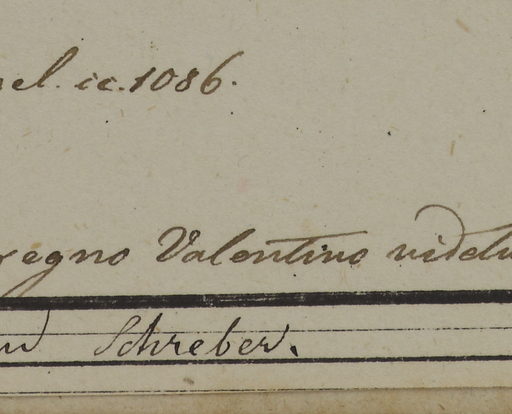 el. ic. 1086.
regno Valentino videtu
Schreber.